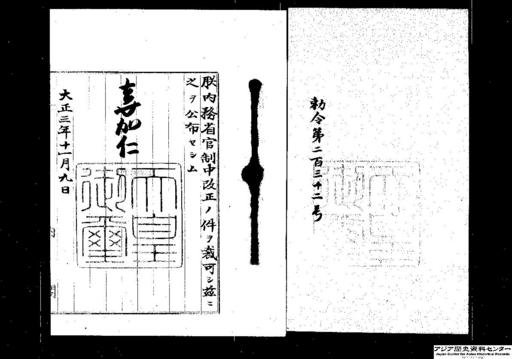 勅令第二百三十二号
朕内務省官制中改正ノ件ヲ裁可シ茲ニ
之ヲ公布セシム
嘉仁
天皇
御璽
大正三年十一月九日
内閣
アジア歴史資料センター
Japan Center for Asian Historical Records